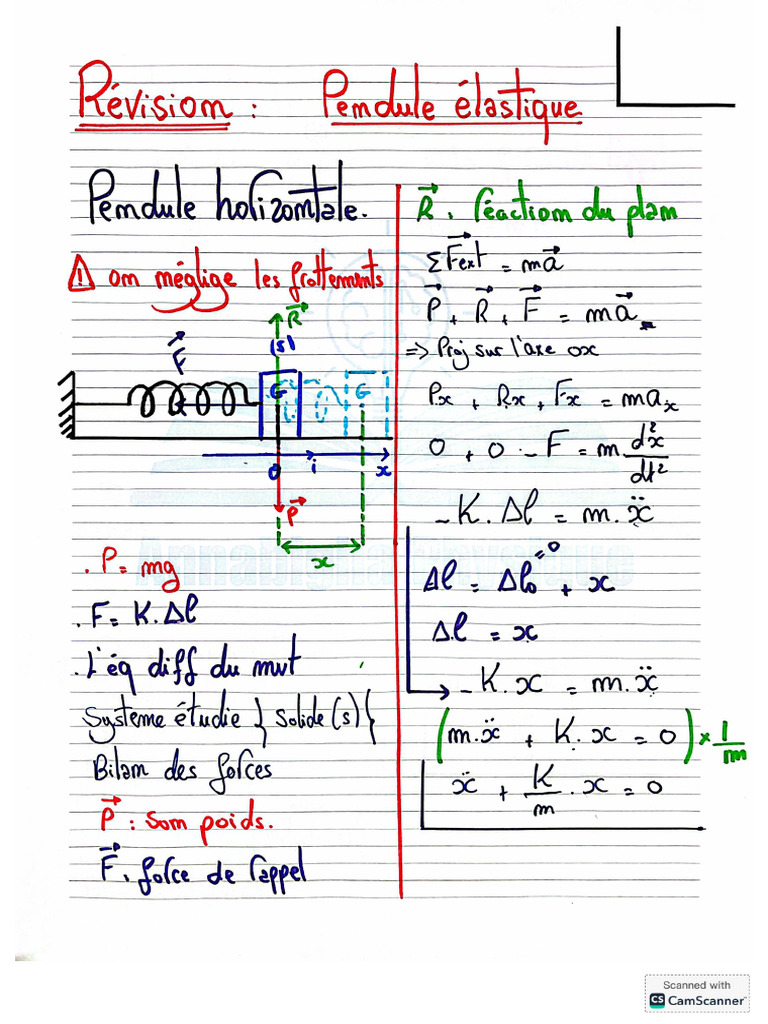 Révision : Pendule élastique
Pendule horizontale.
⚠ on néglige les frottements
R⃗
(s)
F⃗
G G
O i x
P⃗
x
. P = mg
. F = K.Δl
. L'éq diff du mvt
Systeme étudie } Solide (s) {
Bilan des forces
P⃗ : Son poids.
F⃗ . force de rappel
R⃗ . réaction du plan
ΣF⃗ext = ma⃗
P⃗ + R⃗ + F⃗ = ma⃗
=> Proj sur l'axe ox
Px + Rx + Fx = max
0 + 0 - F = m d²x/dt²
- K. Δl = m. ẍ
Δl = Δl₀ + x
=0
Δl = x
- K. x = m. ẍ
(m.ẍ + K. x = 0) × 1/m
ẍ + K/m . x = 0
Scanned with
CS CamScanner